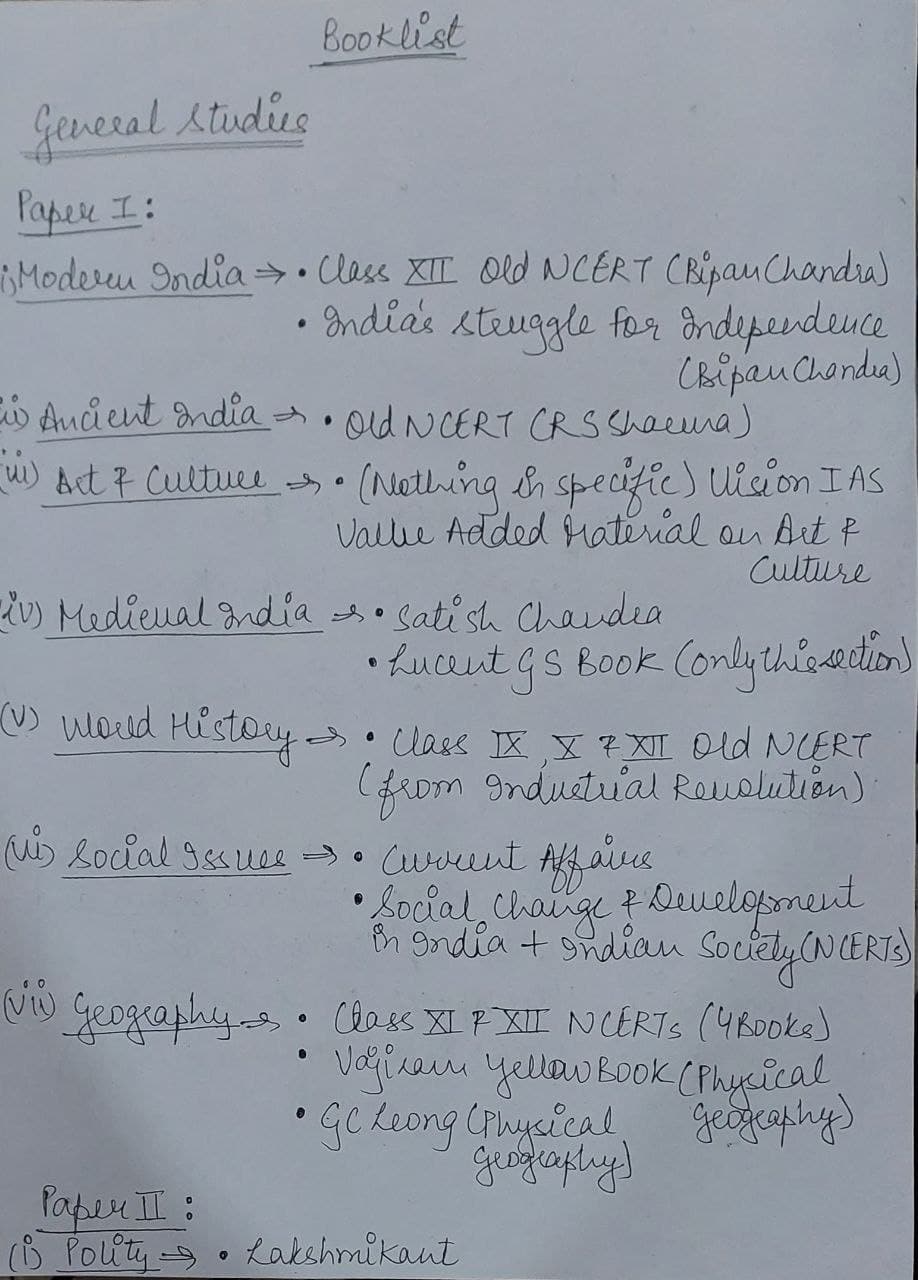 Booklist
General Studies
Paper I:
i) Modern India → • Class XII Old NCERT (Bipan Chandra)
• India's Struggle for Independence
(Bipan Chandra)
ii) Ancient India → • Old NCERT (RS Sharma)
(iii) Art & Culture → • (Nothing in specific) Vision IAS
Value Added Material on Art &
Culture
(iv) Medieval India → • Satish Chandra
• Lucent GS Book (only this section)
(v) World History → • Class IX, X & XII Old NCERT
(from Industrial Revolution)
(vi) Social Issues → • Current Affairs
• Social Change & Development
in India + Indian Society (NCERTs)
(vii) Geography → • Class XI & XII NCERTs (4 Books)
• Vajiram Yellow Book (Physical
Geography)
• GC Leong (Physical
Geography)
Paper II:
(i) Polity → • Lakshmikant